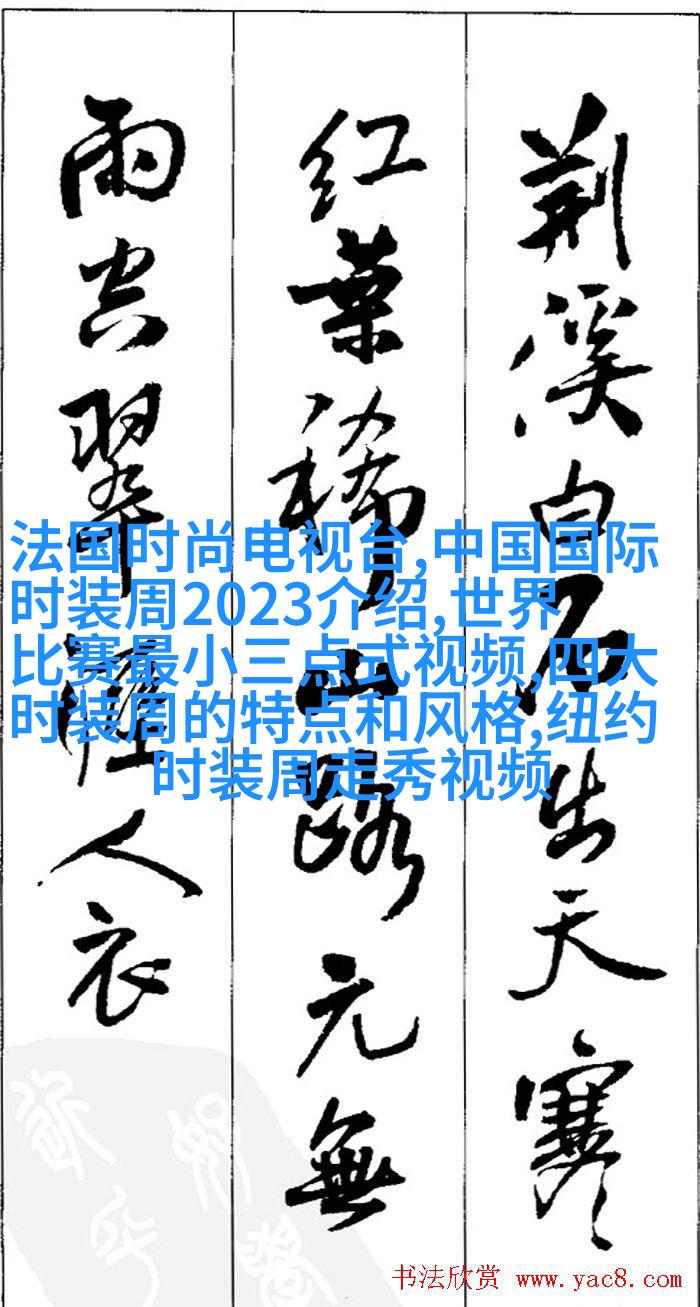 荆溪白石出天寒
红葉稀山路元無
雨空翠湿人衣
法国时尚电视台,中国国际
时装周2023介绍,世界
比赛最小三点式视频,四大
时装周的特点和风格,纽约
时装周走秀视频
书法欣赏 www.yac8.com